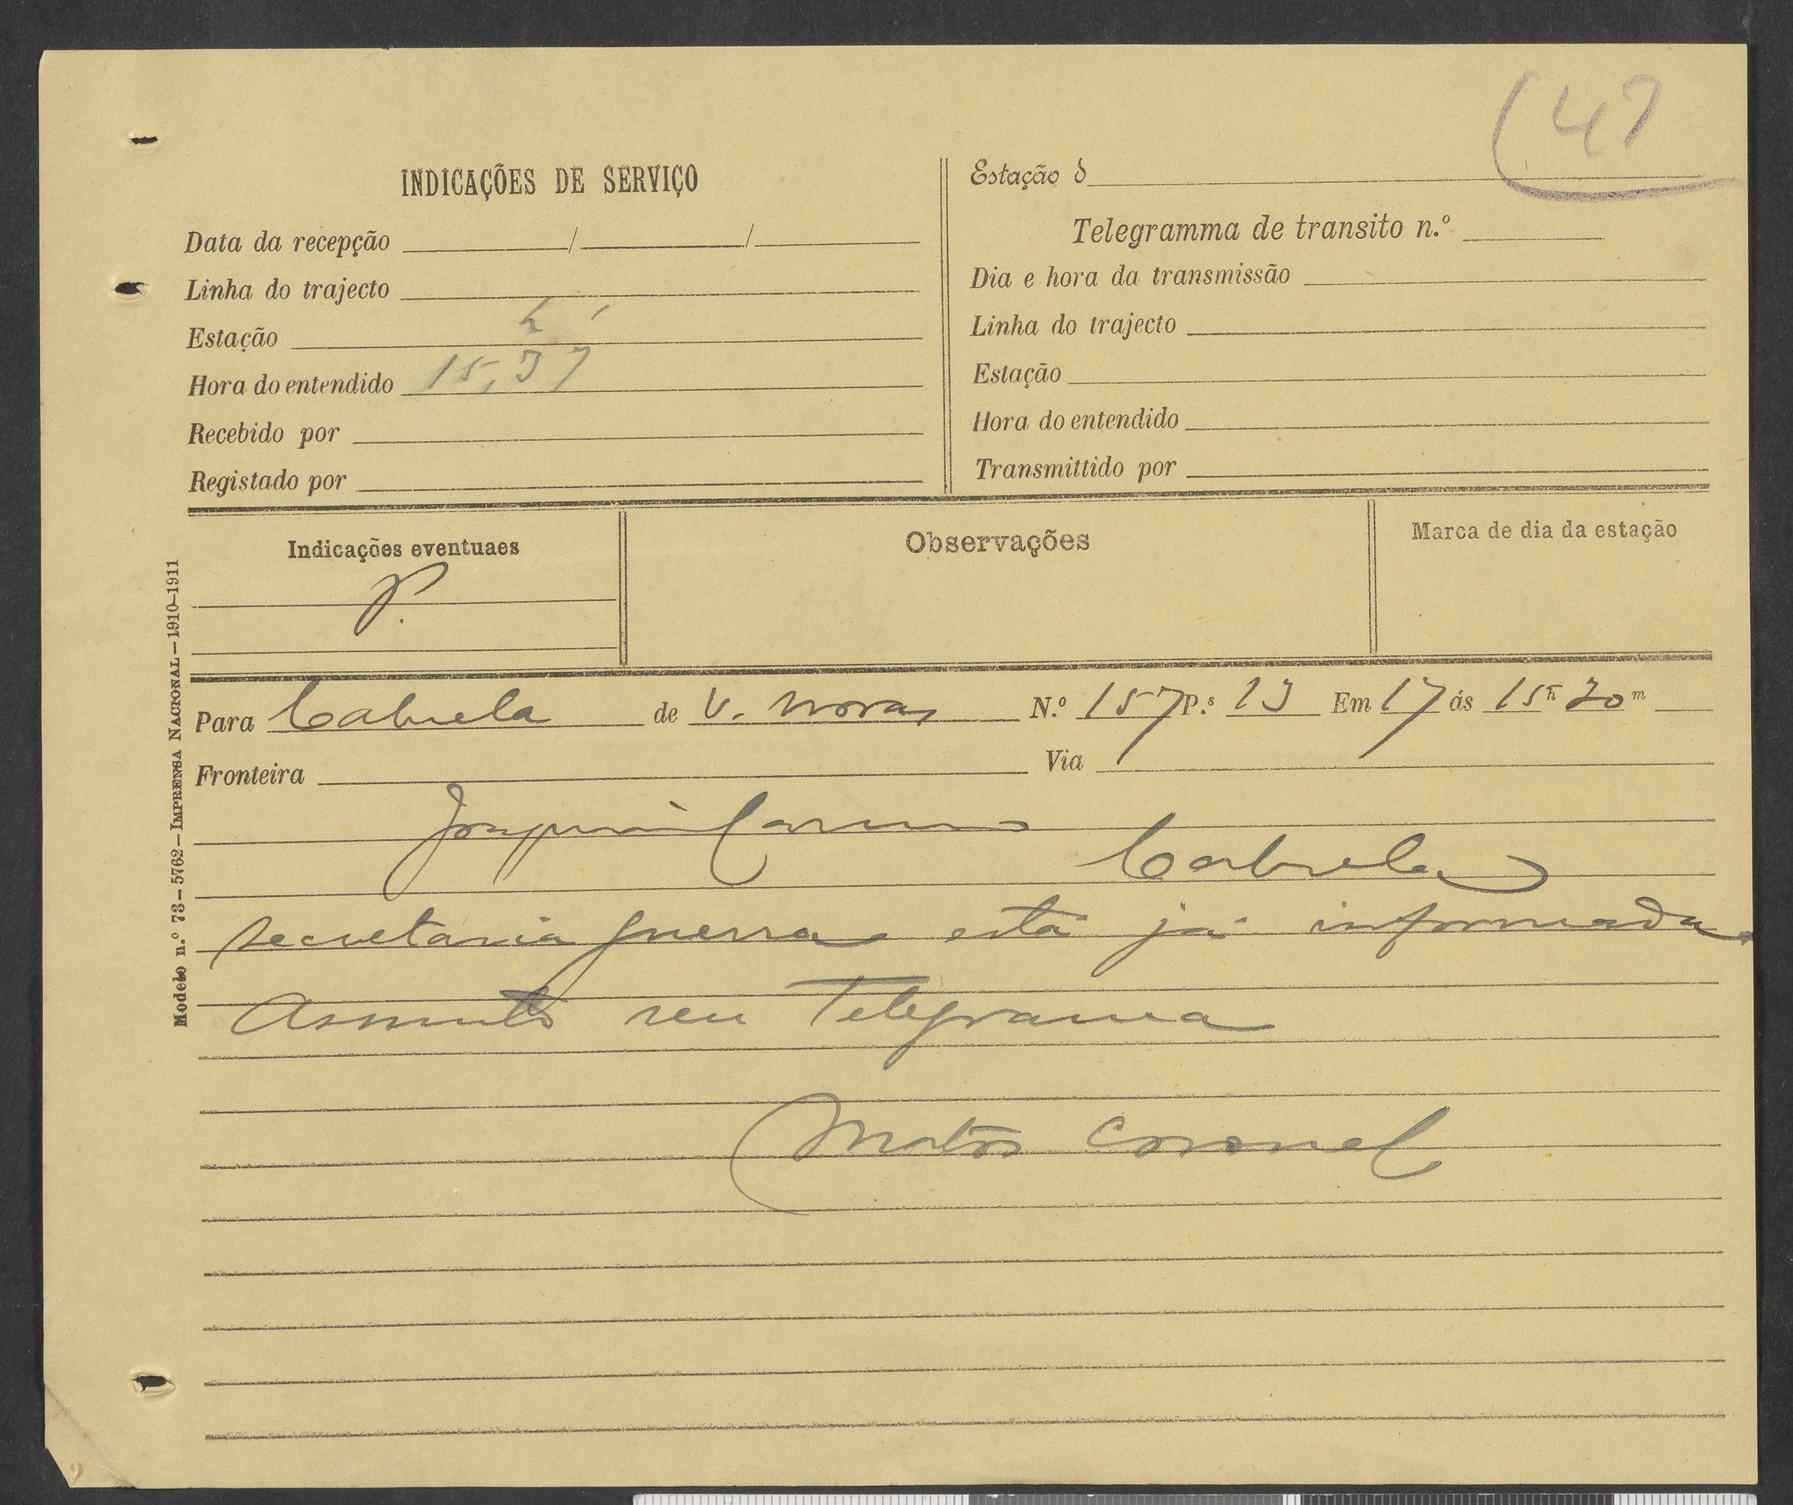 (47
INDICAÇÕES DE SERVIÇO
Data da recepção / /
Linha do trajecto
Estação
Hora do entendido 15,37
Recebido por
Registado por
Estação d
Telegramma de transito n.º
Dia e hora da transmissão
Linha do trajecto
Estação
Hora do entendido
Transmittido por
Indicações eventuaes
P.
Observações
Marca de dia da estação
Modelo n.º 73 – 5762 – IMPRENSA NACIONAL – 1910-1911
Para Cabuela de V. Novas N.º 157 P.s 13 Em 17 ás 15 h 30 m
Fronteira Via
Joaquim
Cabuela
secretaria guerra está já informada
Assunto seu Telegrama
Matos Coronel